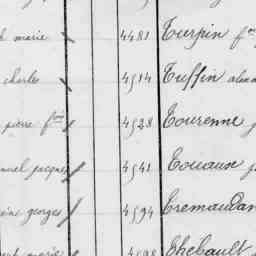 marie 4481 Turpin fᵒⁱˢ
charles 4514 Tuffin alexa
pierre fᵒⁱˢ 4528 Tourenne
nuel jacques 4541 Touaux
georges 4594 Tremaudan
marie 4598 Thebault